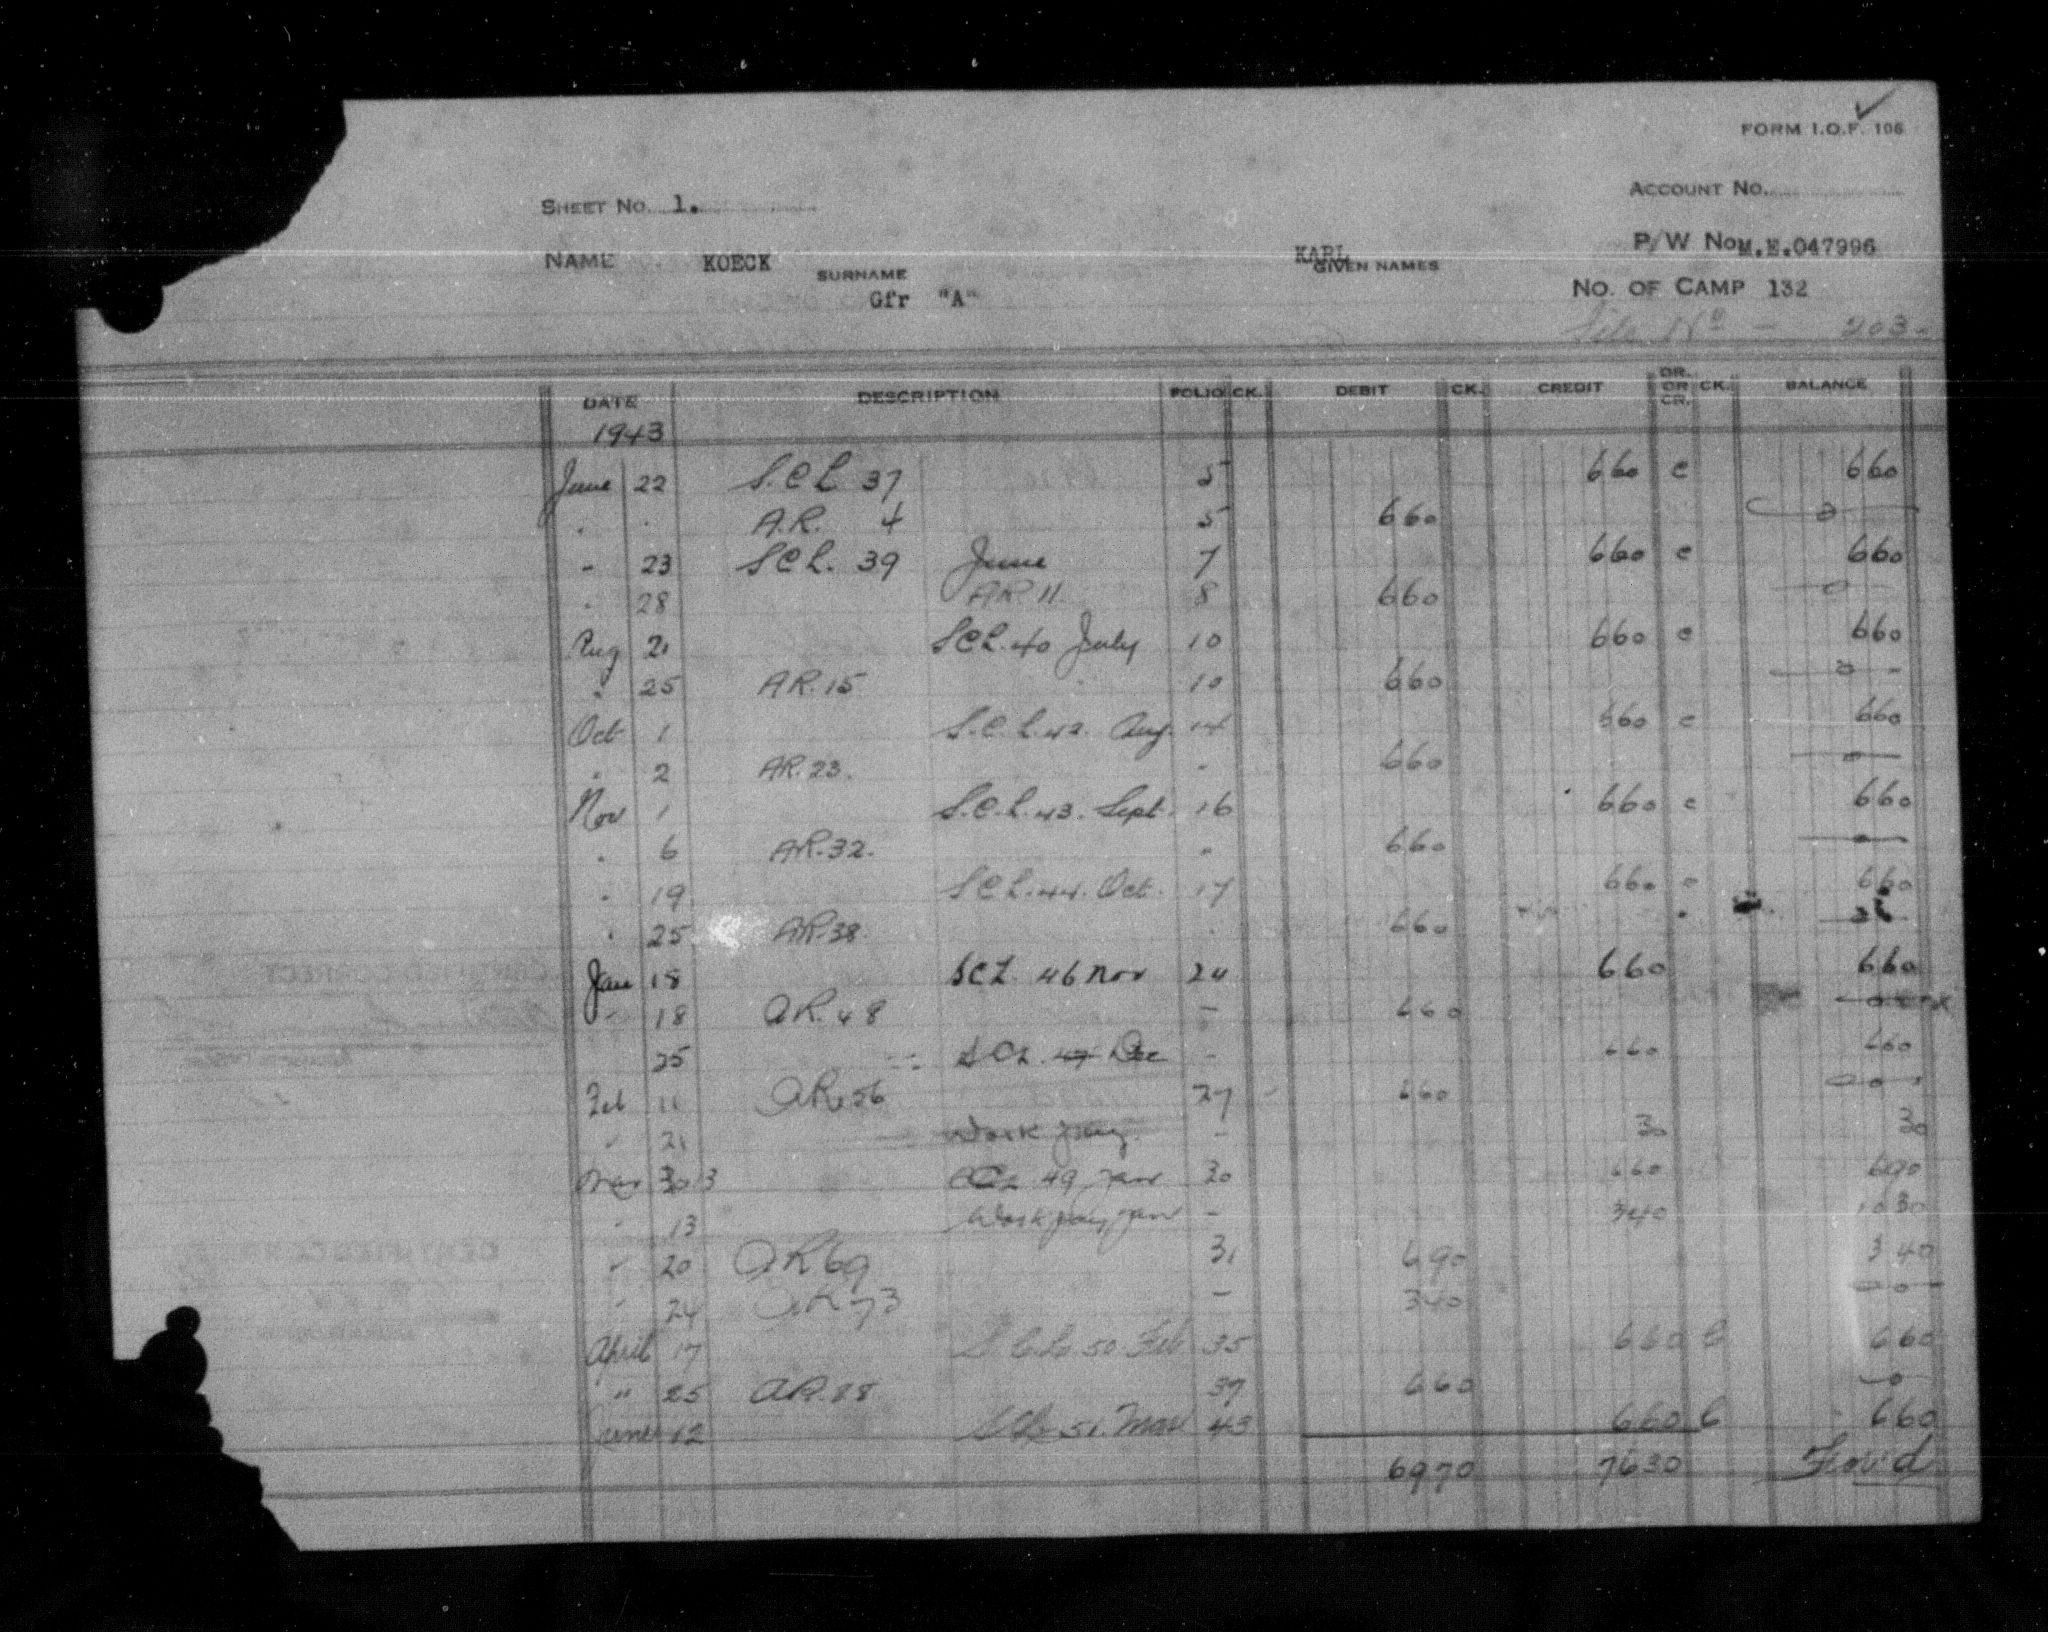 FORM I.O.F. 106
SHEET No. 1.
ACCOUNT No.
NAME KOECK KARL P/W No M.E.047996
SURNAME GIVEN NAMES
Gfr "A" No. OF CAMP 132
File No - 203-
DATE DESCRIPTION FOLIO CK. DEBIT CK. CREDIT DR. OR CR. CK. BALANCE
1943
June 22 S.C.L. 37 5 660 c 660
" " A.R. 4 5 660 0
" 23 S.C.L. 39 June 7 660 c 660
" 28 A.R. 11 8 660 0
Aug 21 S.C.L. 40 July 10 660 c 660
" 25 A.R. 15 10 660 0
Oct 1 S.C.L. 42. Aug. 14 660 c 660
" 2 A.R. 23. " 660 0
Nov 1 S.C.L. 43. Sept. 16 660 c 660
" 6 A.R. 32. " 660 0
" 19 S.C.L. 44. Oct. 17 660 c 660
" 25 A.R. 38. " 660
Jan 18 S.C.L. 46 Nov 24 660 660
" 18 A.R. 48 - 660 0
25 S.C.L. 47 Dec - 660 660
Feb 11 A.R. 56 27 660 0
" 21 Work pay. - 30 30
Mar 30 13 SCL 49 Jan 30 660 690
" 13 Work pay Jan - 340 1030
" 20 A.R. 69 31 690 340
" 24 A.R. 73 - 340 0
April 17 S.C.L. 50 Feb 35 660 C 660
" 25 A.R. 88 37 660 0
June 12 S.C.L. 51. Mar 43 660 C 660
6970 7630 For'd